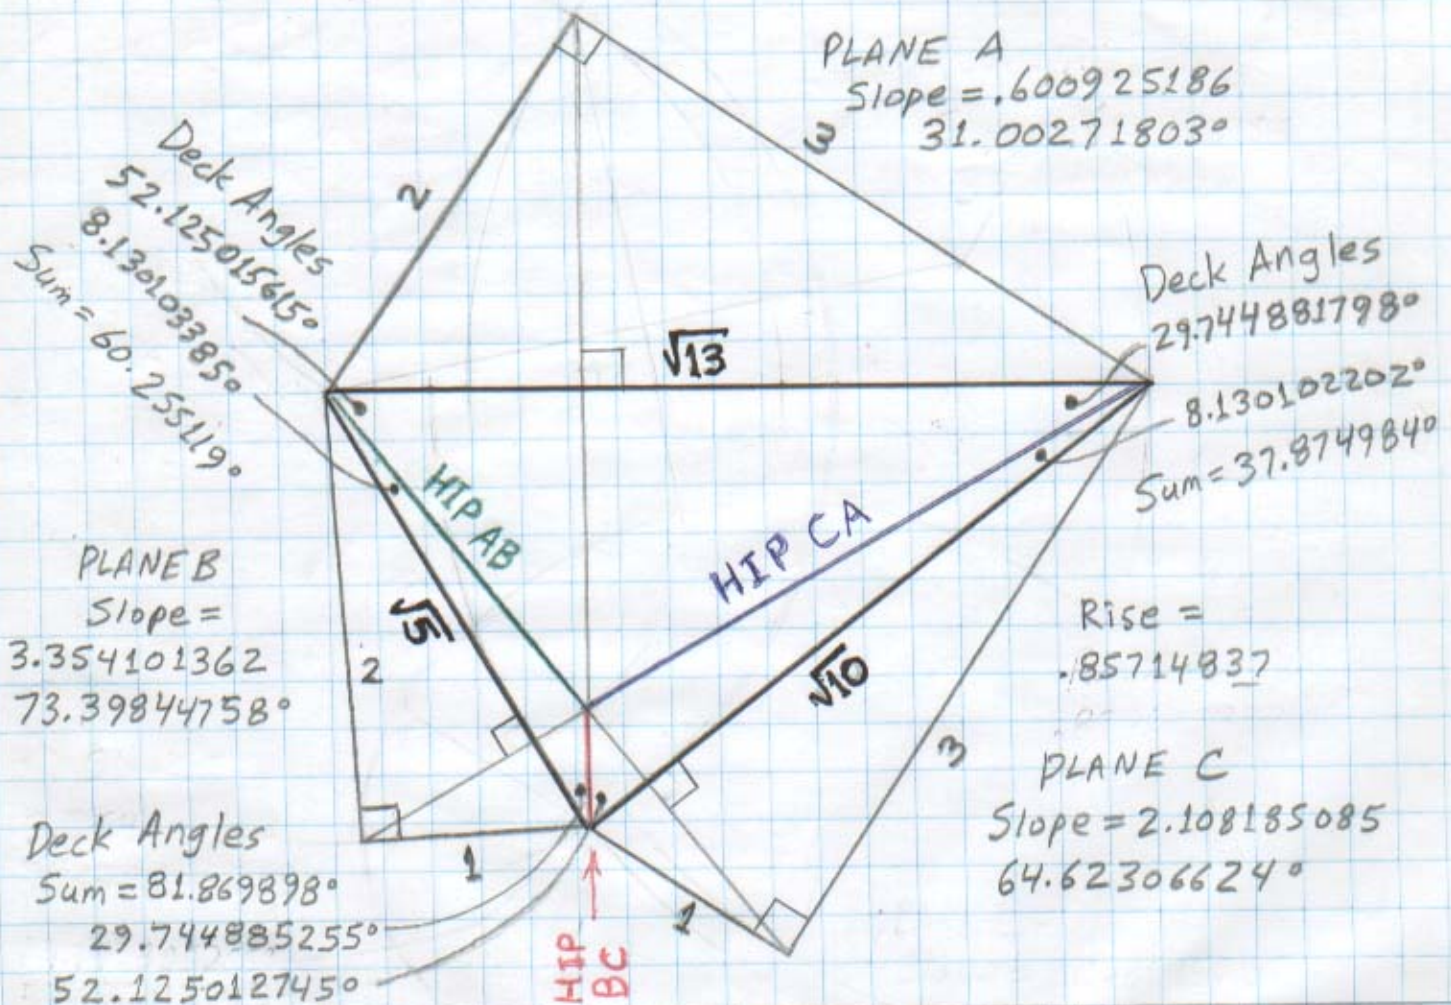 PLANE A
Slope = .600925186
31.00271803°
3
2
Deck Angles
52.125015615°
8.130103385°
Sum = 60.255119°
√13
Deck Angles
29.744881798°
8.130102202°
Sum = 37.874984°
HIP AB
HIP CA
PLANE B
Slope =
3.354101362
73.39844758°
√5
2
√10
Rise =
.85714837
3
PLANE C
Slope = 2.108185085
64.62306624°
Deck Angles
Sum = 81.869898°
29.744885255°
52.125012745°
1
1
HIP
BC